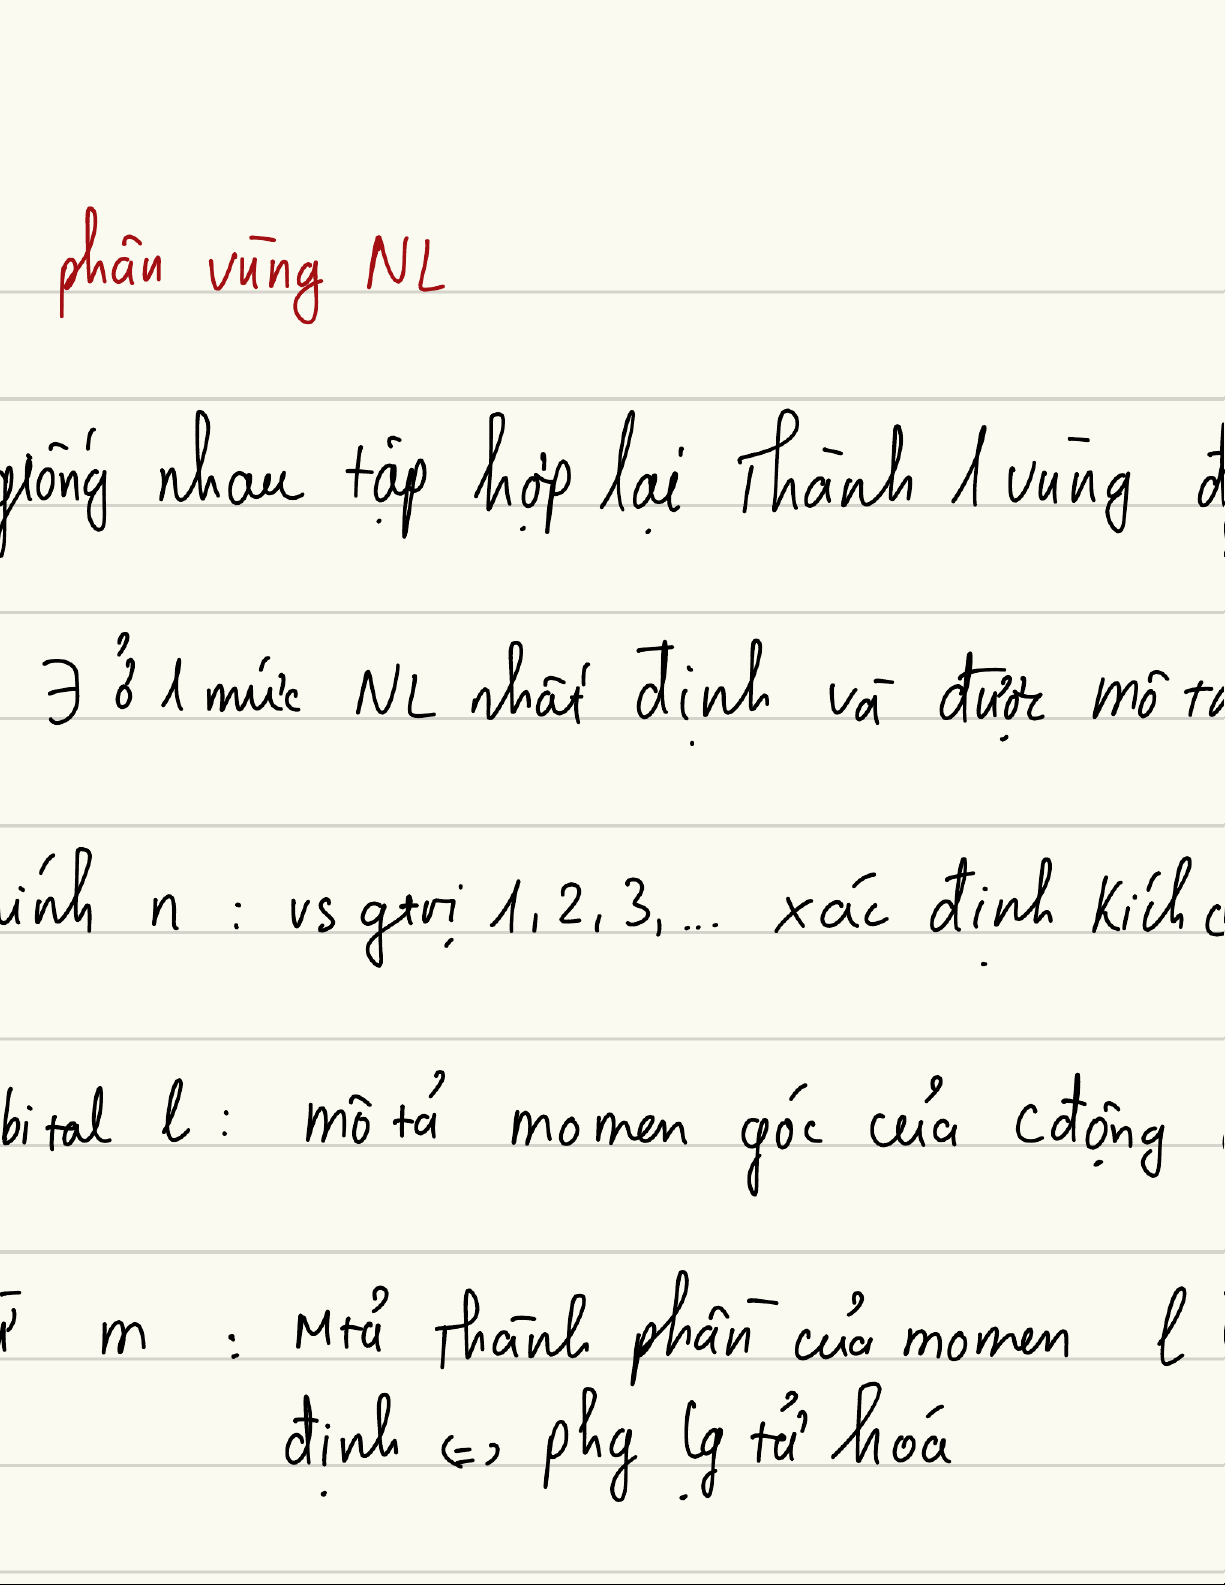 phân vùng NL
giống nhau tập hợp lại thành 1 vùng
∃ ở 1 mức NL nhất định và được mô tả
n : vs gtrị 1, 2, 3, ... xác định kích
bital l : mô tả momen góc của cđộng
m : Mtả thành phần của momen l
định <=> phg lg tử hoá